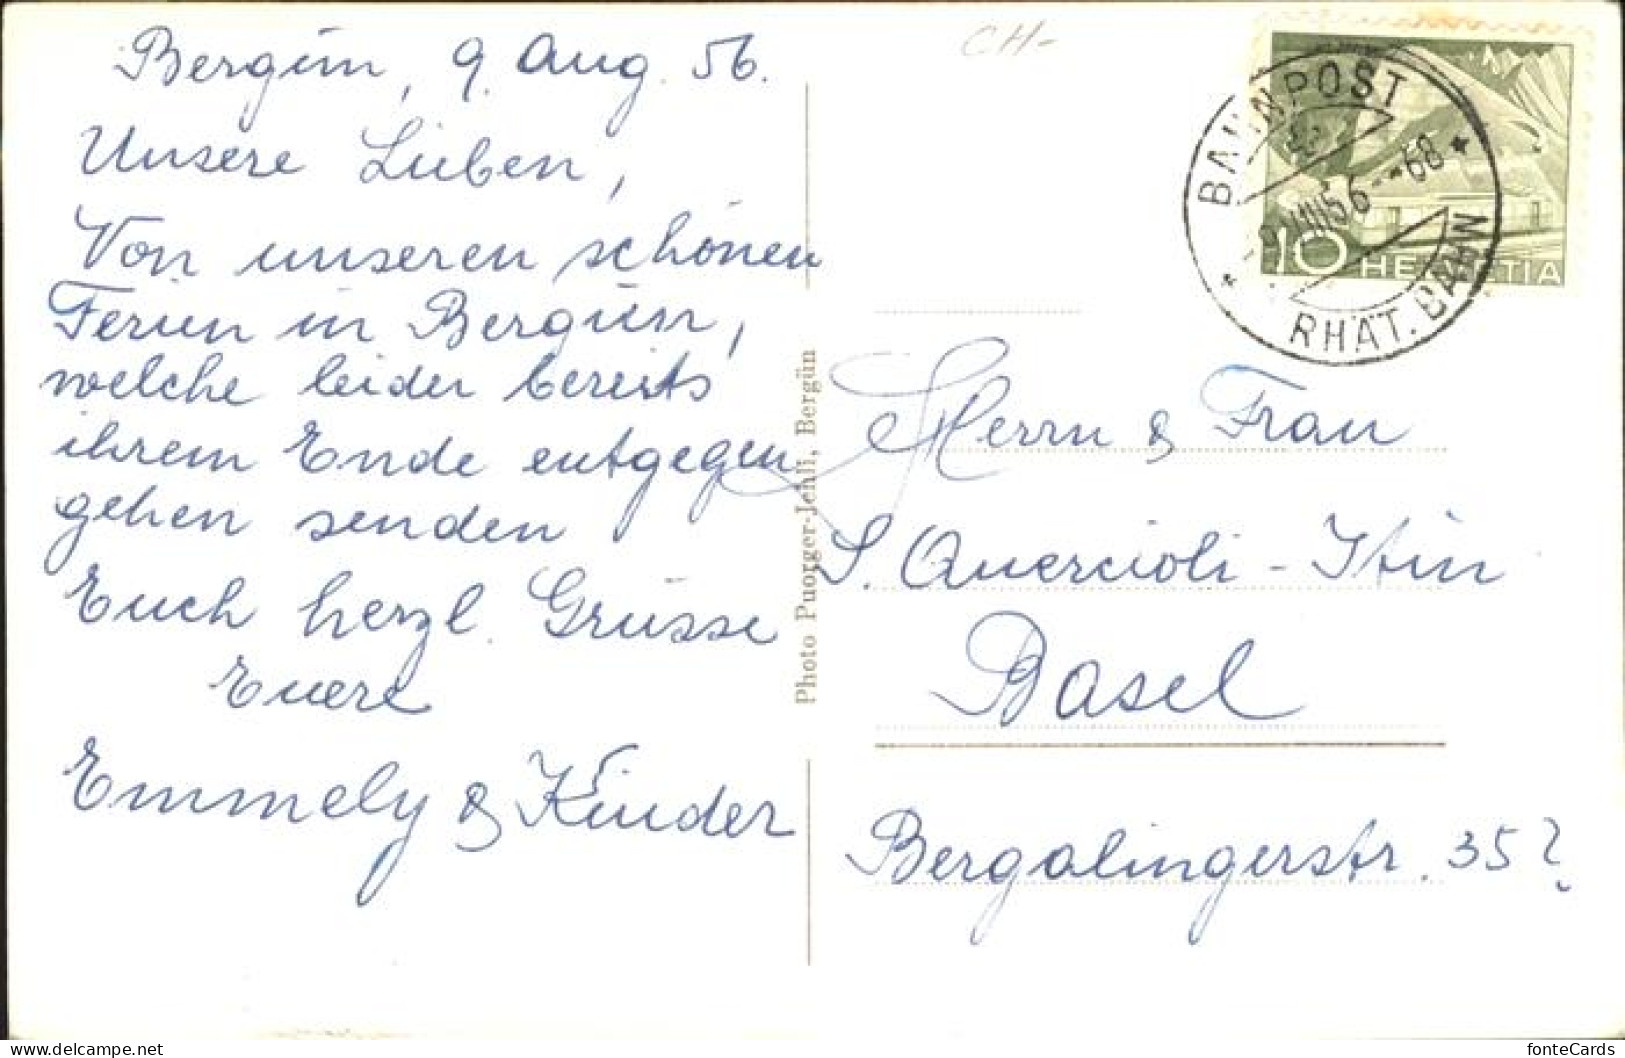 Bergün, 9. Aug. 56.
Unsere Lieben,
Von unseren schönen
Ferien in Bergün,
welche leider bereits
ihrem Ende entgegen
gehen senden
Euch herzl. Grüsse
Euere
Emmely & Kinder
Photo Puorger-Jehli, Bergün
CH-
BAHNPOST
VIII 56 --68
RHÄT. BAHN
10 HELVETIA
Herrn & Frau
S. Quercioli-Itin
Basel
Bergalingerstr. 35?
delcampe.net
fonteCards